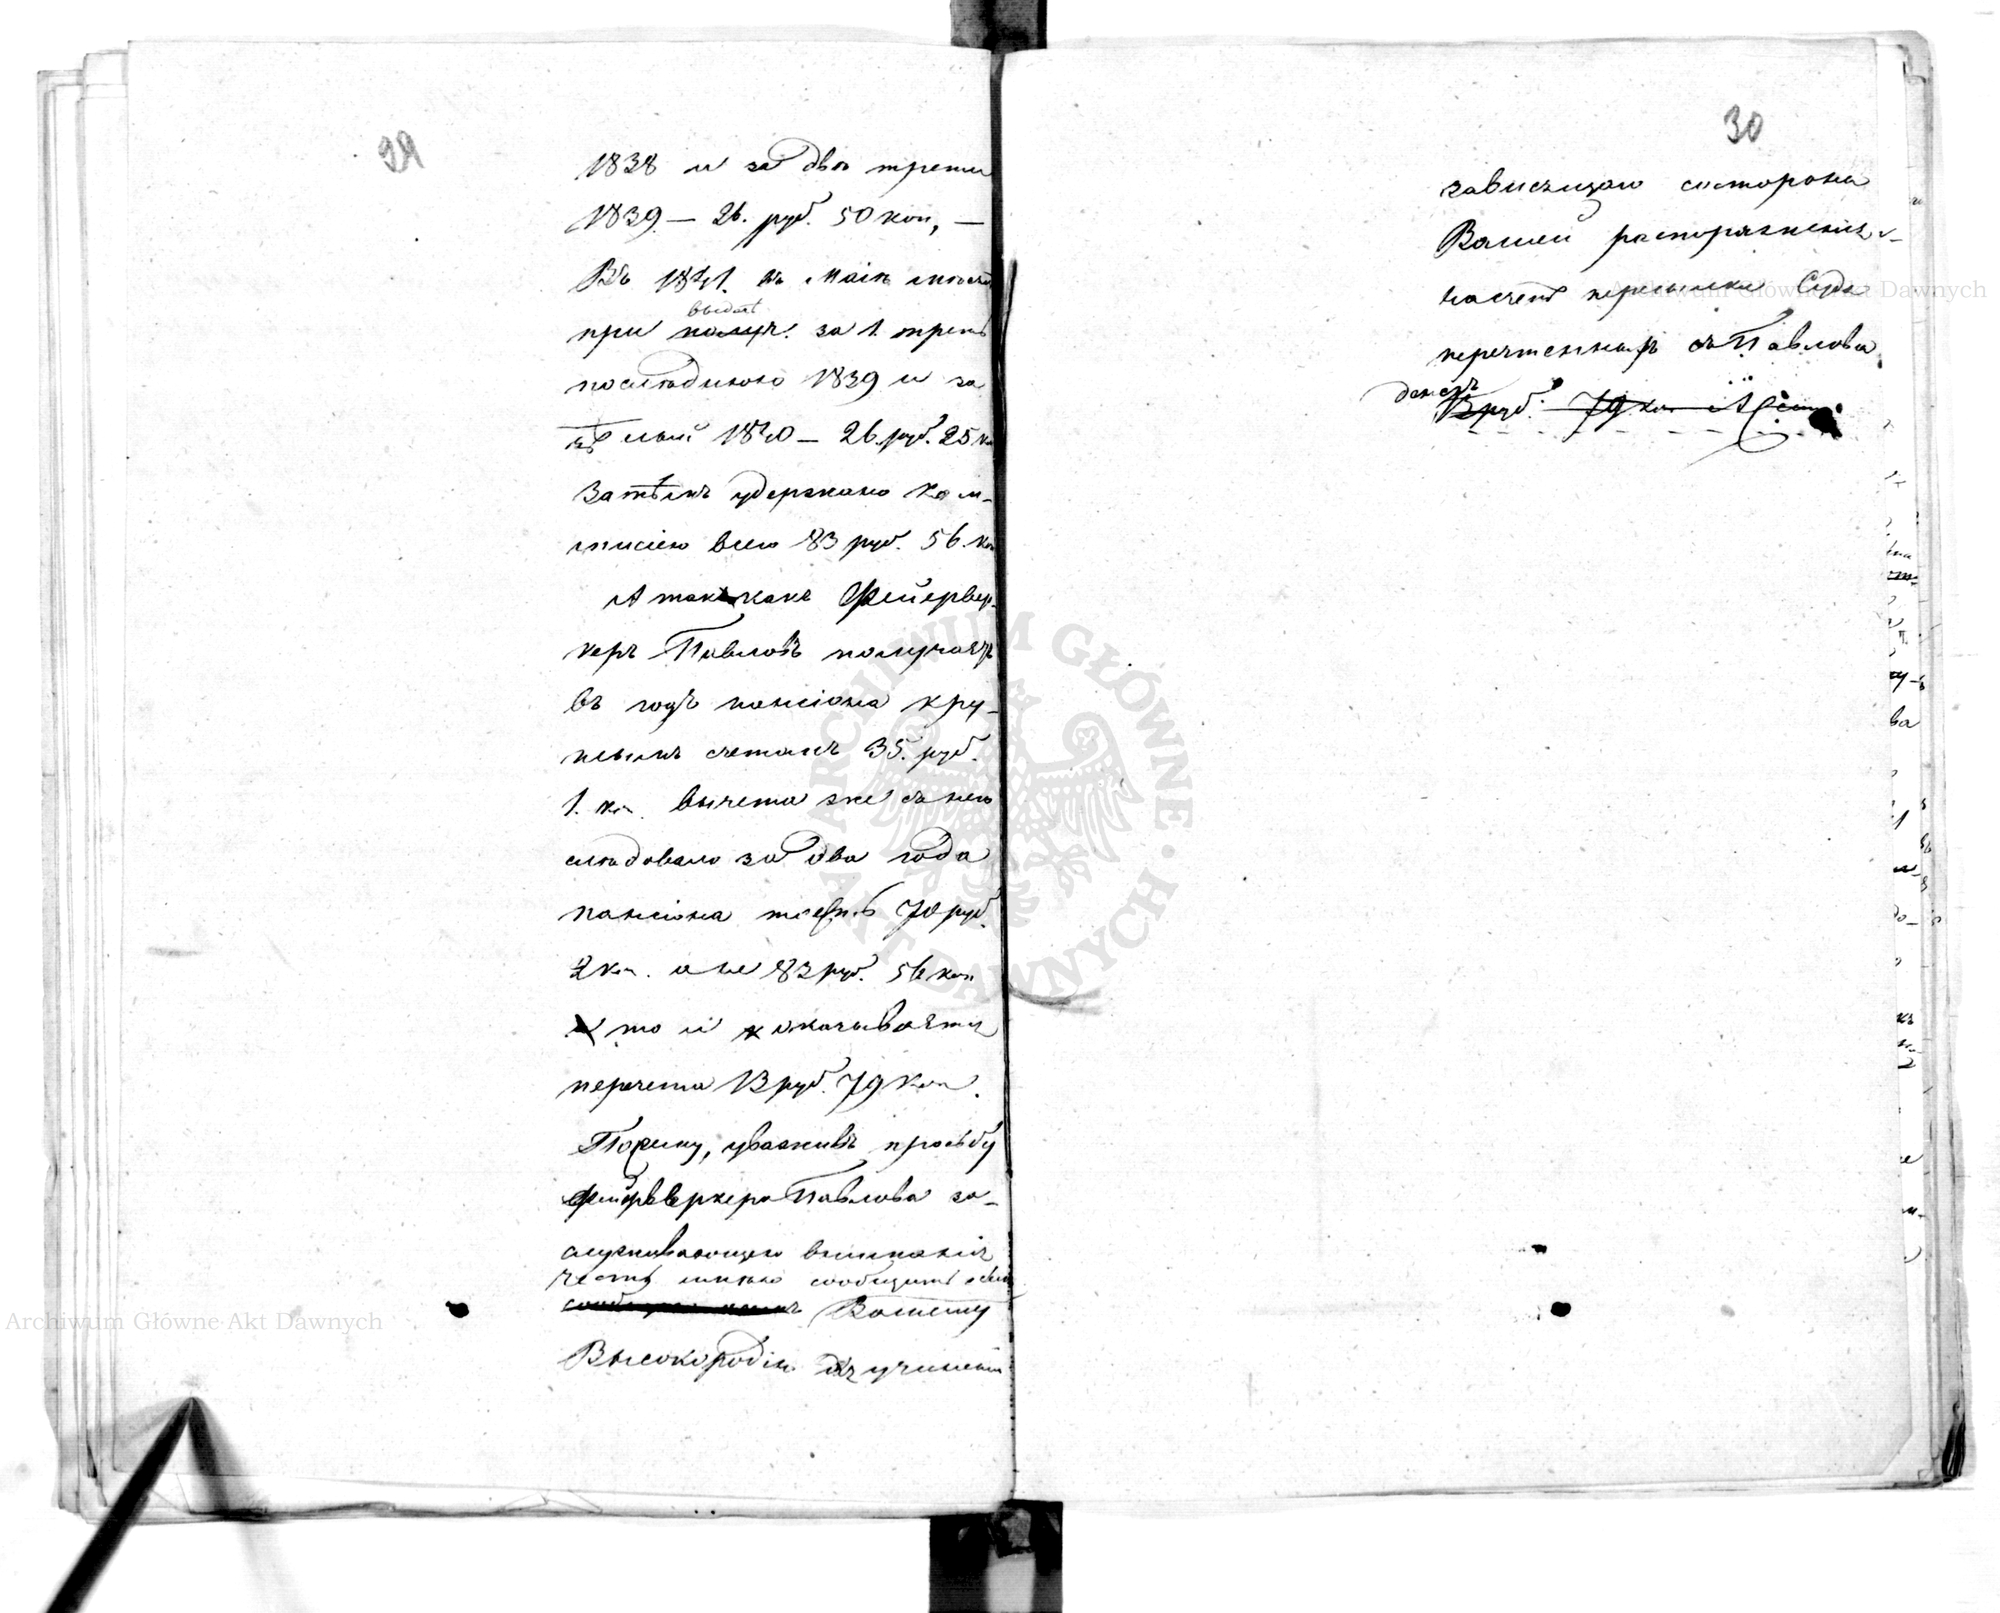 29
1838 и за две трети
1839 — 26. руб. 50 коп, —
Въ 1841. въ Маіѣ мѣсяцѣ
выдачѣ
при получ. за 1. треть
послѣднюю 1839 и за
цѣлый 1840 — 26. руб. 25 к
Затѣмъ удержано Ком-
мисіею всего 83 руб. 56. коп
А такъ какъ Фейервер-
керъ Павловъ получаетъ
въ годъ пансіона кру-
глымъ счетомъ 35. руб.
1. коп. вычета же съ него
слѣдовало за два года
пансіона 70 руб.
2 коп. а не 83 руб. 56 коп
то и оказывается
перечета 13 руб. 79 коп.
Почему, уваживъ просьбу
Фейерверкера Павлова за-
служивающую вниманія
честь имѣю сообщить о семъ
Вашему
Высокородію для учиненія
30
зависящаго со стороны
Вашей распоряженія
на счетъ пересылки Суда
перечтенныхъ съ Павлова
денегъ
13 руб. 79 коп
Archiwum Główne Akt Dawnych
Archiwum Główne Akt Dawnych
ARCHIWUM GŁÓWNE AKT DAWNYCH